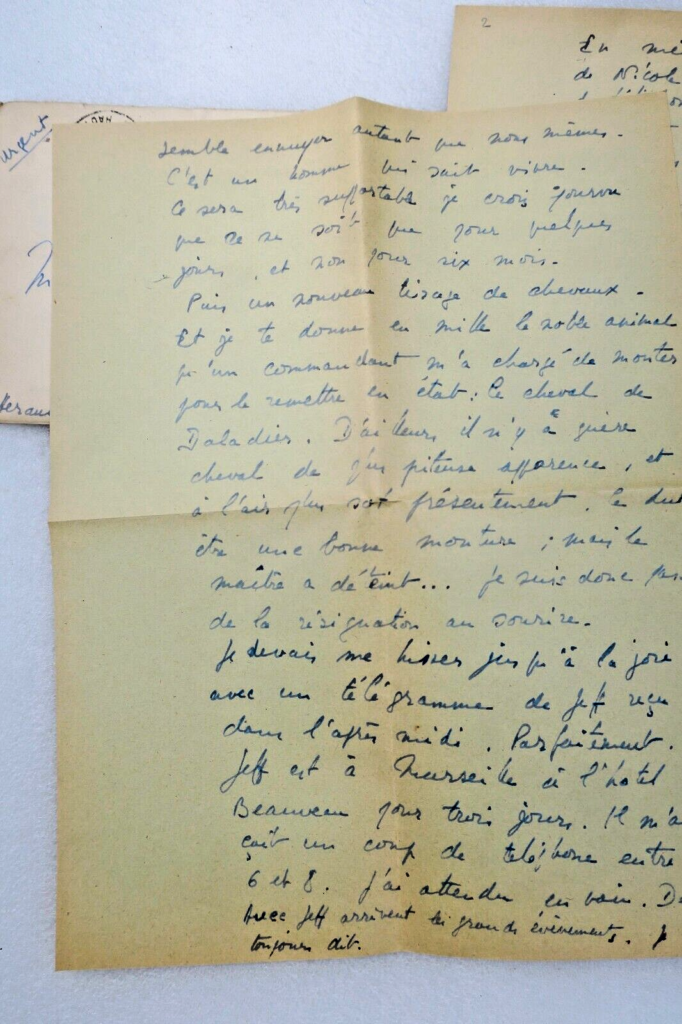 2
En mê
de Nicole
urgent
HAU
semble ennuyer autant que nous mêmes.
C'est un homme qui sait vivre.
Ce sera très supportable je crois pourvu
que ce ne soit que pour quelques
jours, et non pour six mois.
Puis un nouveau tirage de chevaux.
Et je te donne en mille le noble animal
qu'un commandant m'a chargé de monter
pour le remettre en état: le cheval de
Daladier. D'ailleurs il n'y a guère
cheval de plus piteuse apparence, et
à l'air plus sot présentement. Ce dut
être une bonne monture; mais le
maître a déteint... Je suis donc pas
de la résignation au sourire.
Je devais me hisser jusqu'à la joie
avec un télégramme de Jeff reçu
dans l'après midi. Parfaitement.
Jeff est à Marseille à l'hôtel
Beauveau pour trois jours. Il m'a
un coup de téléphone entre
6 et 8. J'ai attendu en vain. D
Avec Jeff arrivent les grands évènements. J
toujours dit.